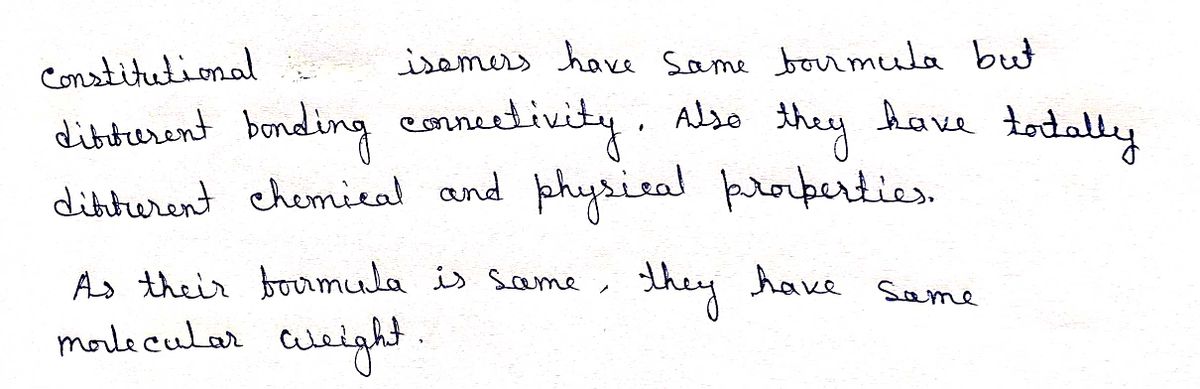 Constitutional isomers have same formula but
different bonding connectivity. Also they have totally
different chemical and physical properties.
As their formula is same, they have same
molecular weight.